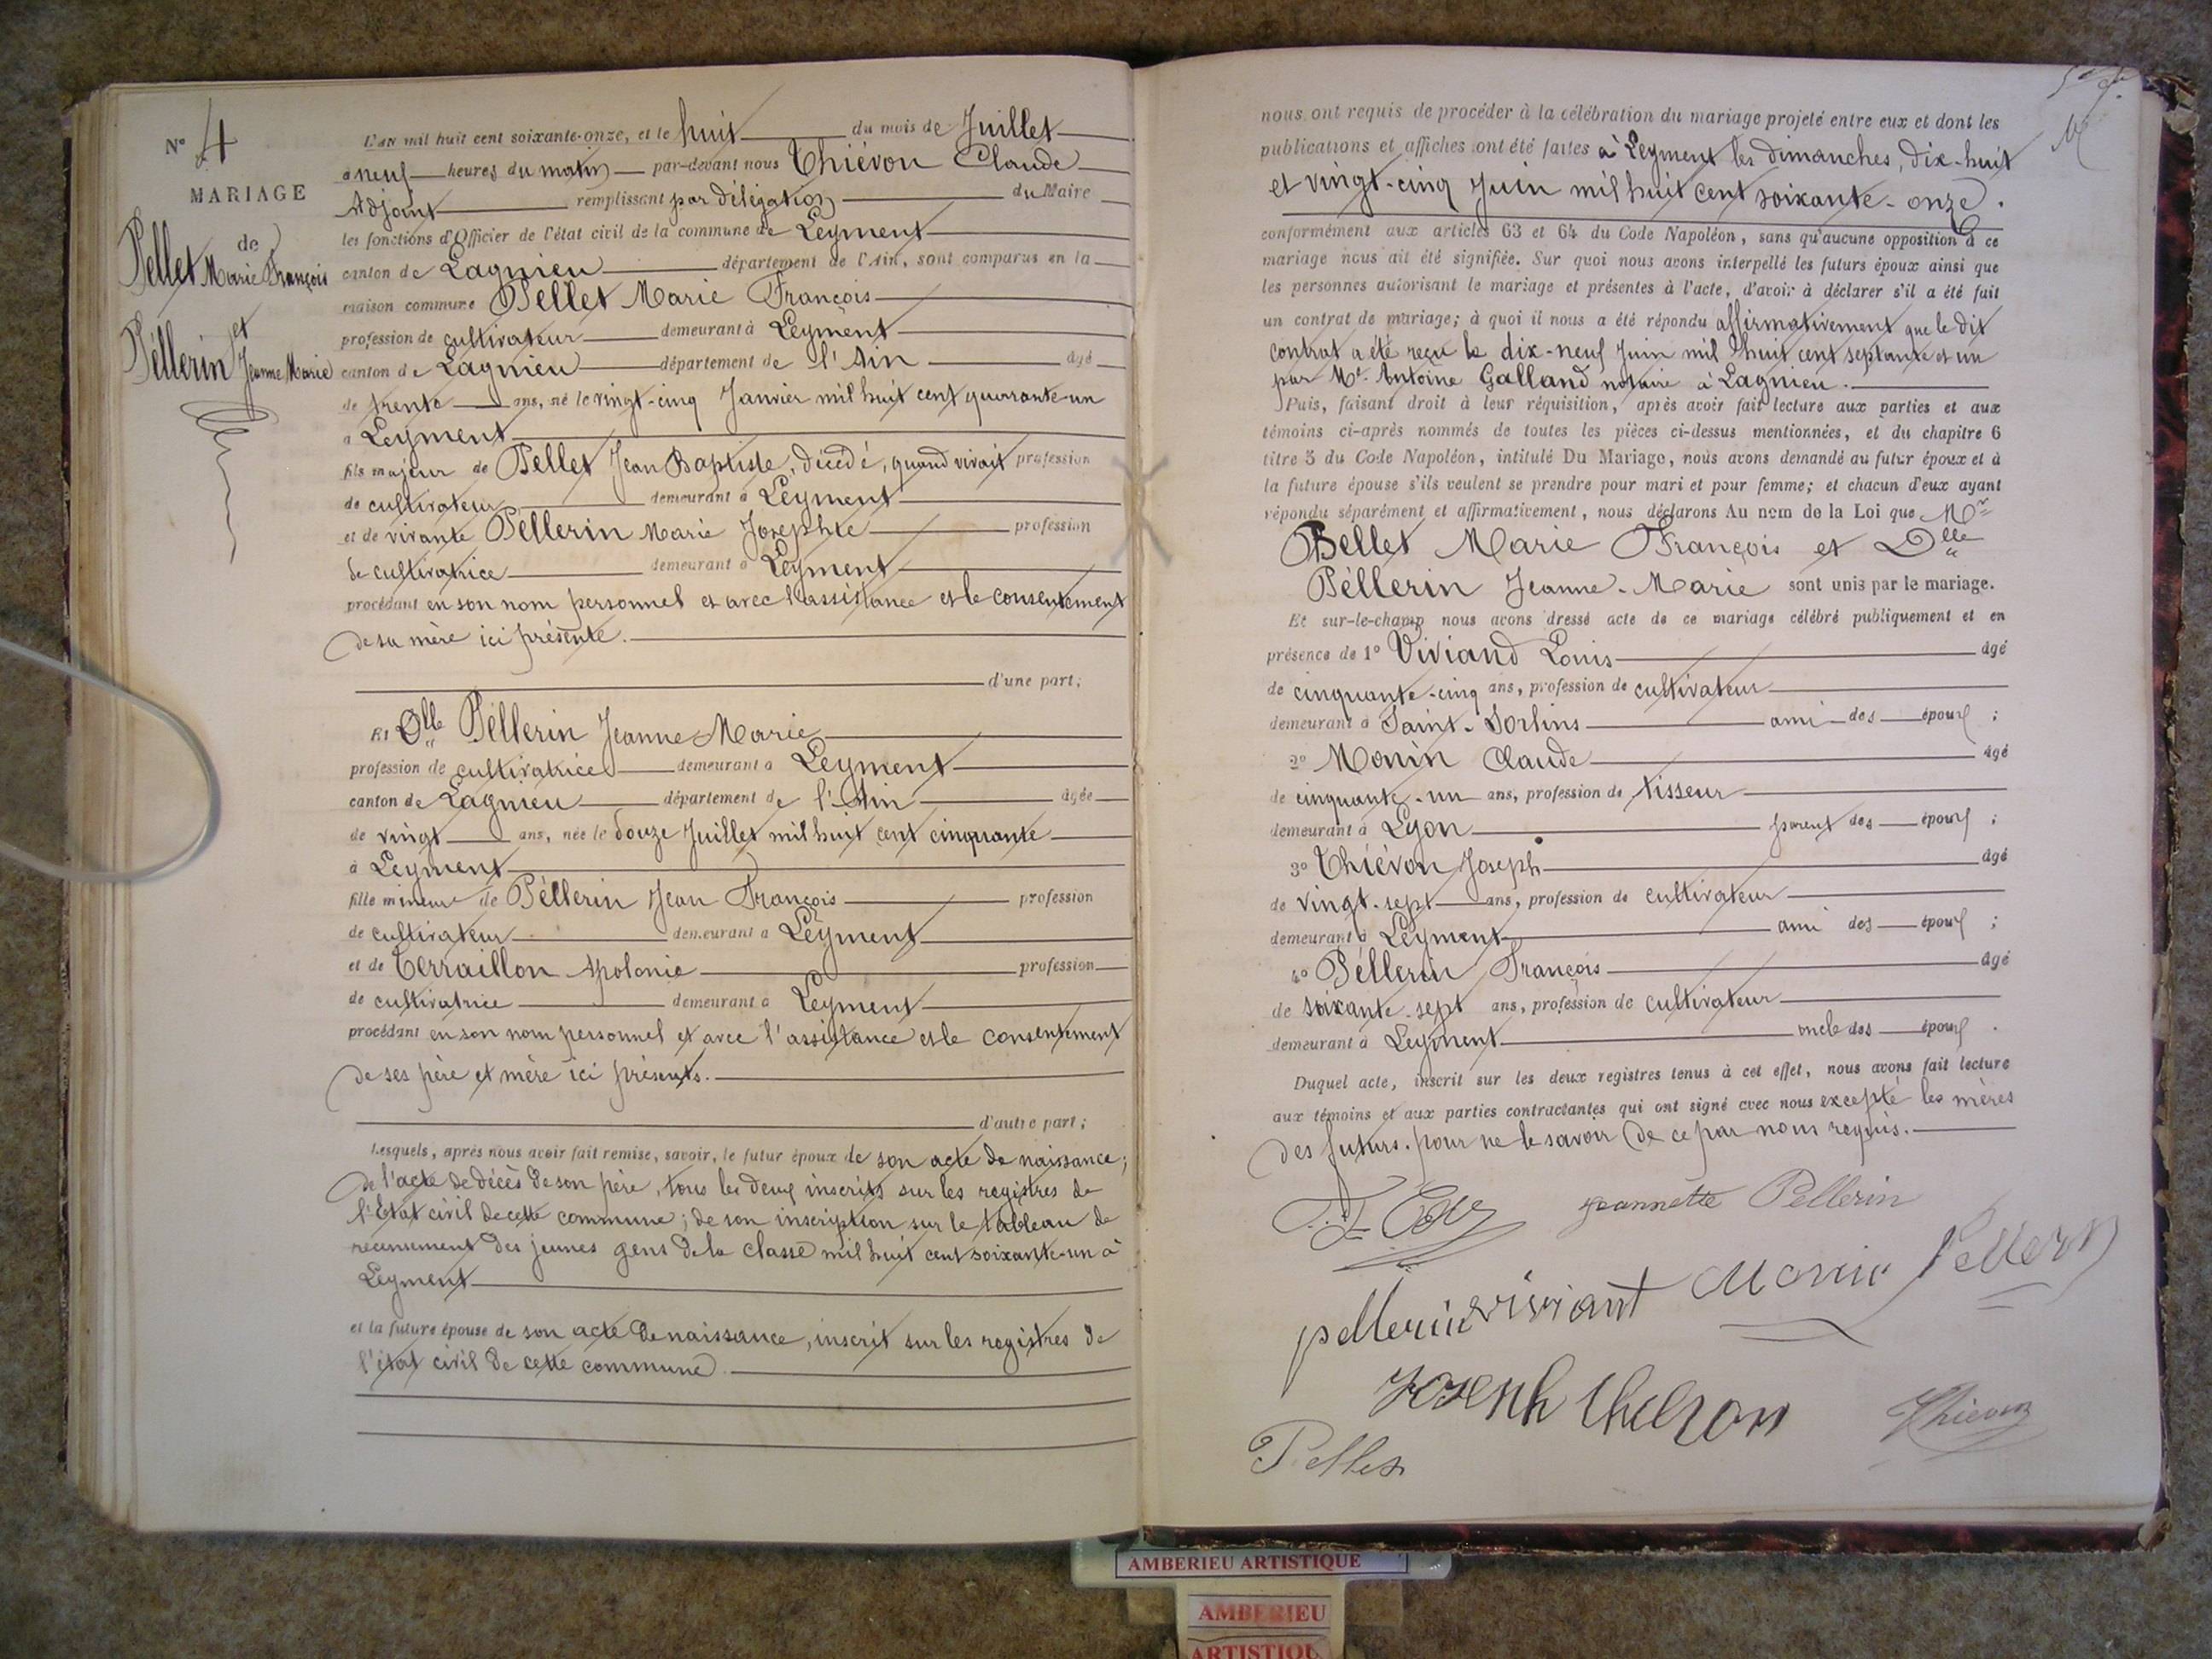 N° 4
MARIAGE
de
Pellet Marie François
et
Péllerin Jeanne Marie
L'an mil huit cent soixante-onze, et le huit du mois de Juillet
à neuf heures du matin par-devant nous Thiévon Claude
Adjoint remplissant par délégation du Maire
les fonctions d'Officier de l'état civil de la commune de Leyment
canton de Lagnieu département de l'Ain, sont comparus en la
maison commune Pellet Marie François
profession de cultivateur demeurant à Leyment
canton de Lagnieu département de l'Ain âgé
de trente ans, né le vingt-cinq Janvier mil huit cent quarante-un
à Leyment
fils majeur de Pellet Jean Baptiste, décédé, quand vivait profession
de cultivateur demeurant à Leyment
et de vivante Péllerin Marie Josephte profession
de cultivatrice demeurant à Leyment
procédant en son nom personnel et avec l'assistance et le consentement
de sa mère ici présente.
d'une part;
Et Dlle Péllerin Jeanne Marie
profession de cultivatrice demeurant à Leyment
canton de Lagnieu département de l'Ain âgée
de vingt ans, née le douze Juillet mil huit cent cinquante
à Leyment
fille mineure de Péllerin Jean François profession
de cultivateur demeurant à Leyment
et de Terraillon Apolonie profession
de cultivatrice demeurant à Leyment
procédant en son nom personnel et avec l'assistance et le consentement
de ses père et mère ici présents.
d'autre part;
Lesquels, après nous avoir fait remise, savoir, le futur époux de son acte de naissance;
de l'acte de décès de son père, tous les deux inscrits sur les registres de
l'Etat civil de cette commune; de son inscription sur le tableau de
recensement des jeunes gens de la classe mil huit cent soixante-un à
Leyment
et la future épouse de son acte de naissance, inscrit sur les registres de
l'état civil de cette commune.
nous ont requis de procéder à la célébration du mariage projeté entre eux et dont les
publications et affiches ont été faites à Leyment les dimanches, dix-huit
et vingt-cinq Juin mil huit cent soixante-onze.
conformément aux articles 63 et 64 du Code Napoléon, sans qu'aucune opposition à ce
mariage nous ait été signifiée. Sur quoi nous avons interpellé les futurs époux ainsi que
les personnes autorisant le mariage et présentes à l'acte, d'avoir à déclarer s'il a été fait
un contrat de mariage; à quoi il nous a été répondu affirmativement que le dit
contrat a été reçu le dix-neuf Juin mil huit cent septante et un
par Me. Antoine Galland notaire à Lagnieu.
Puis, faisant droit à leur réquisition, après avoir fait lecture aux parties et aux
témoins ci-après nommés de toutes les pièces ci-dessus mentionnées, et du chapitre 6
titre 5 du Code Napoléon, intitulé Du Mariage, nous avons demandé au futur époux et à
la future épouse s'ils veulent se prendre pour mari et pour femme; et chacun d'eux ayant
répondu séparément et affirmativement, nous déclarons Au nom de la Loi que Mr
Pellet Marie François et Dlle
Péllerin Jeanne-Marie sont unis par le mariage.
Et sur-le-champ nous avons dressé acte de ce mariage célébré publiquement et en
présence de 1° Viviand Louis âgé
de cinquante-cinq ans, profession de cultivateur
demeurant à Saint-Sorlins ami des époux ;
2° Monin Claude âgé
de cinquante-un ans, profession de tisseur
demeurant à Lyon parent des époux ;
3° Thiévon Joseph âgé
de vingt-sept ans, profession de cultivateur
demeurant à Leyment ami des époux ;
4° Péllerin François âgé
de soixante-sept ans, profession de cultivateur
demeurant à Leyment oncle des époux .
Duquel acte, inscrit sur les deux registres tenus à cet effet, nous avons fait lecture
aux témoins et aux parties contractantes qui ont signé avec nous excepté les mères
des futurs. pour ne le savoir de ce par nous requis.
jeannette Pellerin
pellerin viviant Monin Pellerin
Joseph thievon Thievon
Pellet
AMBERIEU ARTISTIQUE
AMBERIEU
ARTISTIQU